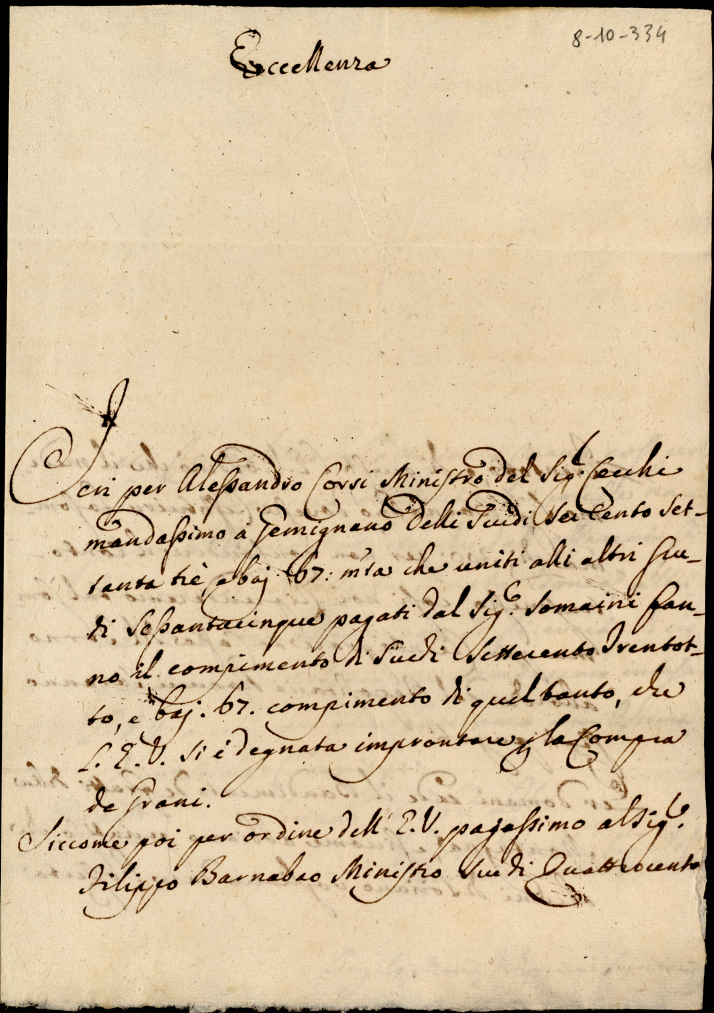 8-10-334
Eccellenza
Ieri per Alessandro Corsi Ministro del Sigr. Cecchi
mandassimo à Gemignano delli Scudi Sei Cento Set-
tanta trè, e baj: 67: mta che uniti alli altri Scu-
di Sessantacinque pagati dal Sigr. Somaini fan-
no il compimento di Scudi Settecento Trentot-
to, e baj. 67. compimento di quel tanto, che
l'E.V. si è degnata improntare p la Compra
de Grani.
Siccome poi per ordine dell' E.V. pagassimo al Sigr.
Filippo Barnabao Ministro Scudi Quattrocento